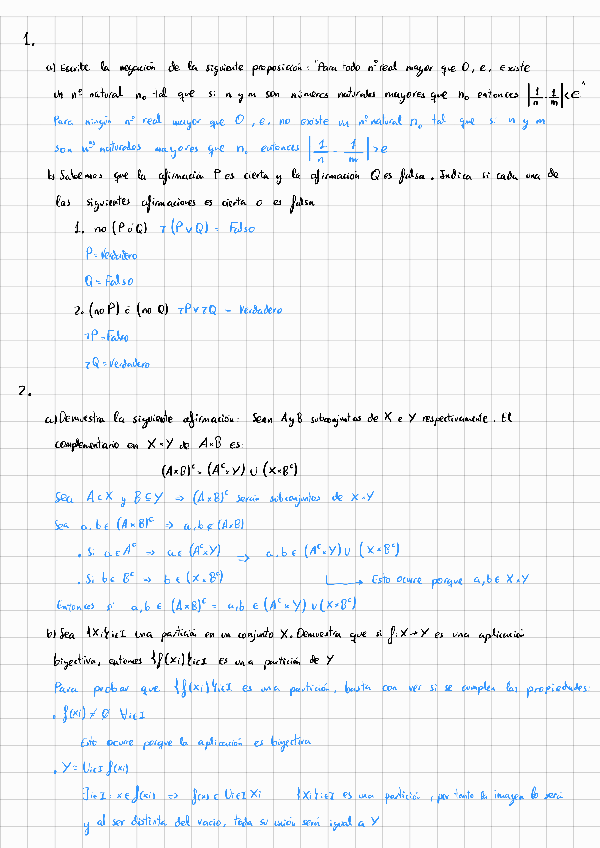 1.
a) Escribe la negación de la siguiente proposición: "Para todo nº real mayor que 0, e, existe
un nº natural n₀ tal que si n y m son números naturales mayores que n₀ entonces |1/n - 1/m| < e"
Para ningún nº real mayor que 0, e, no existe un nº natural n₀ tal que si n y m
son nºs naturales mayores que n₀ entonces |1/n - 1/m| > e
b) Sabemos que la afirmación P es cierta y la afirmación Q es falsa. Indica si cada una de
las siguientes afirmaciones es cierta o es falsa
1. no (P ó Q) ¬(P ∨ Q) = Falso
P = Verdadero
Q = Falso
2. (no P) ó (no Q) ¬P ∨ ¬Q = Verdadero
¬P = Falso
¬Q = Verdadero
2.
a) Demuestra la siguiente afirmación: Sean A y B subconjuntos de X e Y respectivamente. El
complementario en X×Y de A×B es:
(A×B)ᶜ = (Aᶜ×Y) ∪ (X×Bᶜ)
Sea A⊂X y B⊆Y → (A×B)ᶜ serán subconjuntos de X×Y
Sea a,b ∈ (A×B)ᶜ ⇒ a,b ∉ (A×B)
· Si a∈Aᶜ → a∈(Aᶜ×Y) ⇒ a,b ∈ (Aᶜ×Y) ∪ (X×Bᶜ)
· Si b∈Bᶜ → b∈(X×Bᶜ) Esto ocurre porque a,b∈X×Y
Entonces si a,b ∈ (A×B)ᶜ = a,b ∈ (Aᶜ×Y) ∪ (X×Bᶜ)
b) Sea {Xi}i∈I una partición en un conjunto X. Demuestra que si f: X→Y es una aplicación
biyectiva, entonces {f(Xi)}i∈I es una partición de Y
Para probar que {f(Xi)}i∈I es una partición, basta con ver si se cumplen las propiedades:
· f(Xi) ≠ ∅ ∀i∈I
Esto ocurre porque la aplicación es biyectiva
· Y = ∪i∈I f(Xi)
∃i∈I : x∈f(xi) ⇒ f(x) ∈ ∪i∈I Xi {Xi}i∈I es una partición, por tanto la imagen lo será
y al ser distinta del vacío, toda su unión será igual a Y